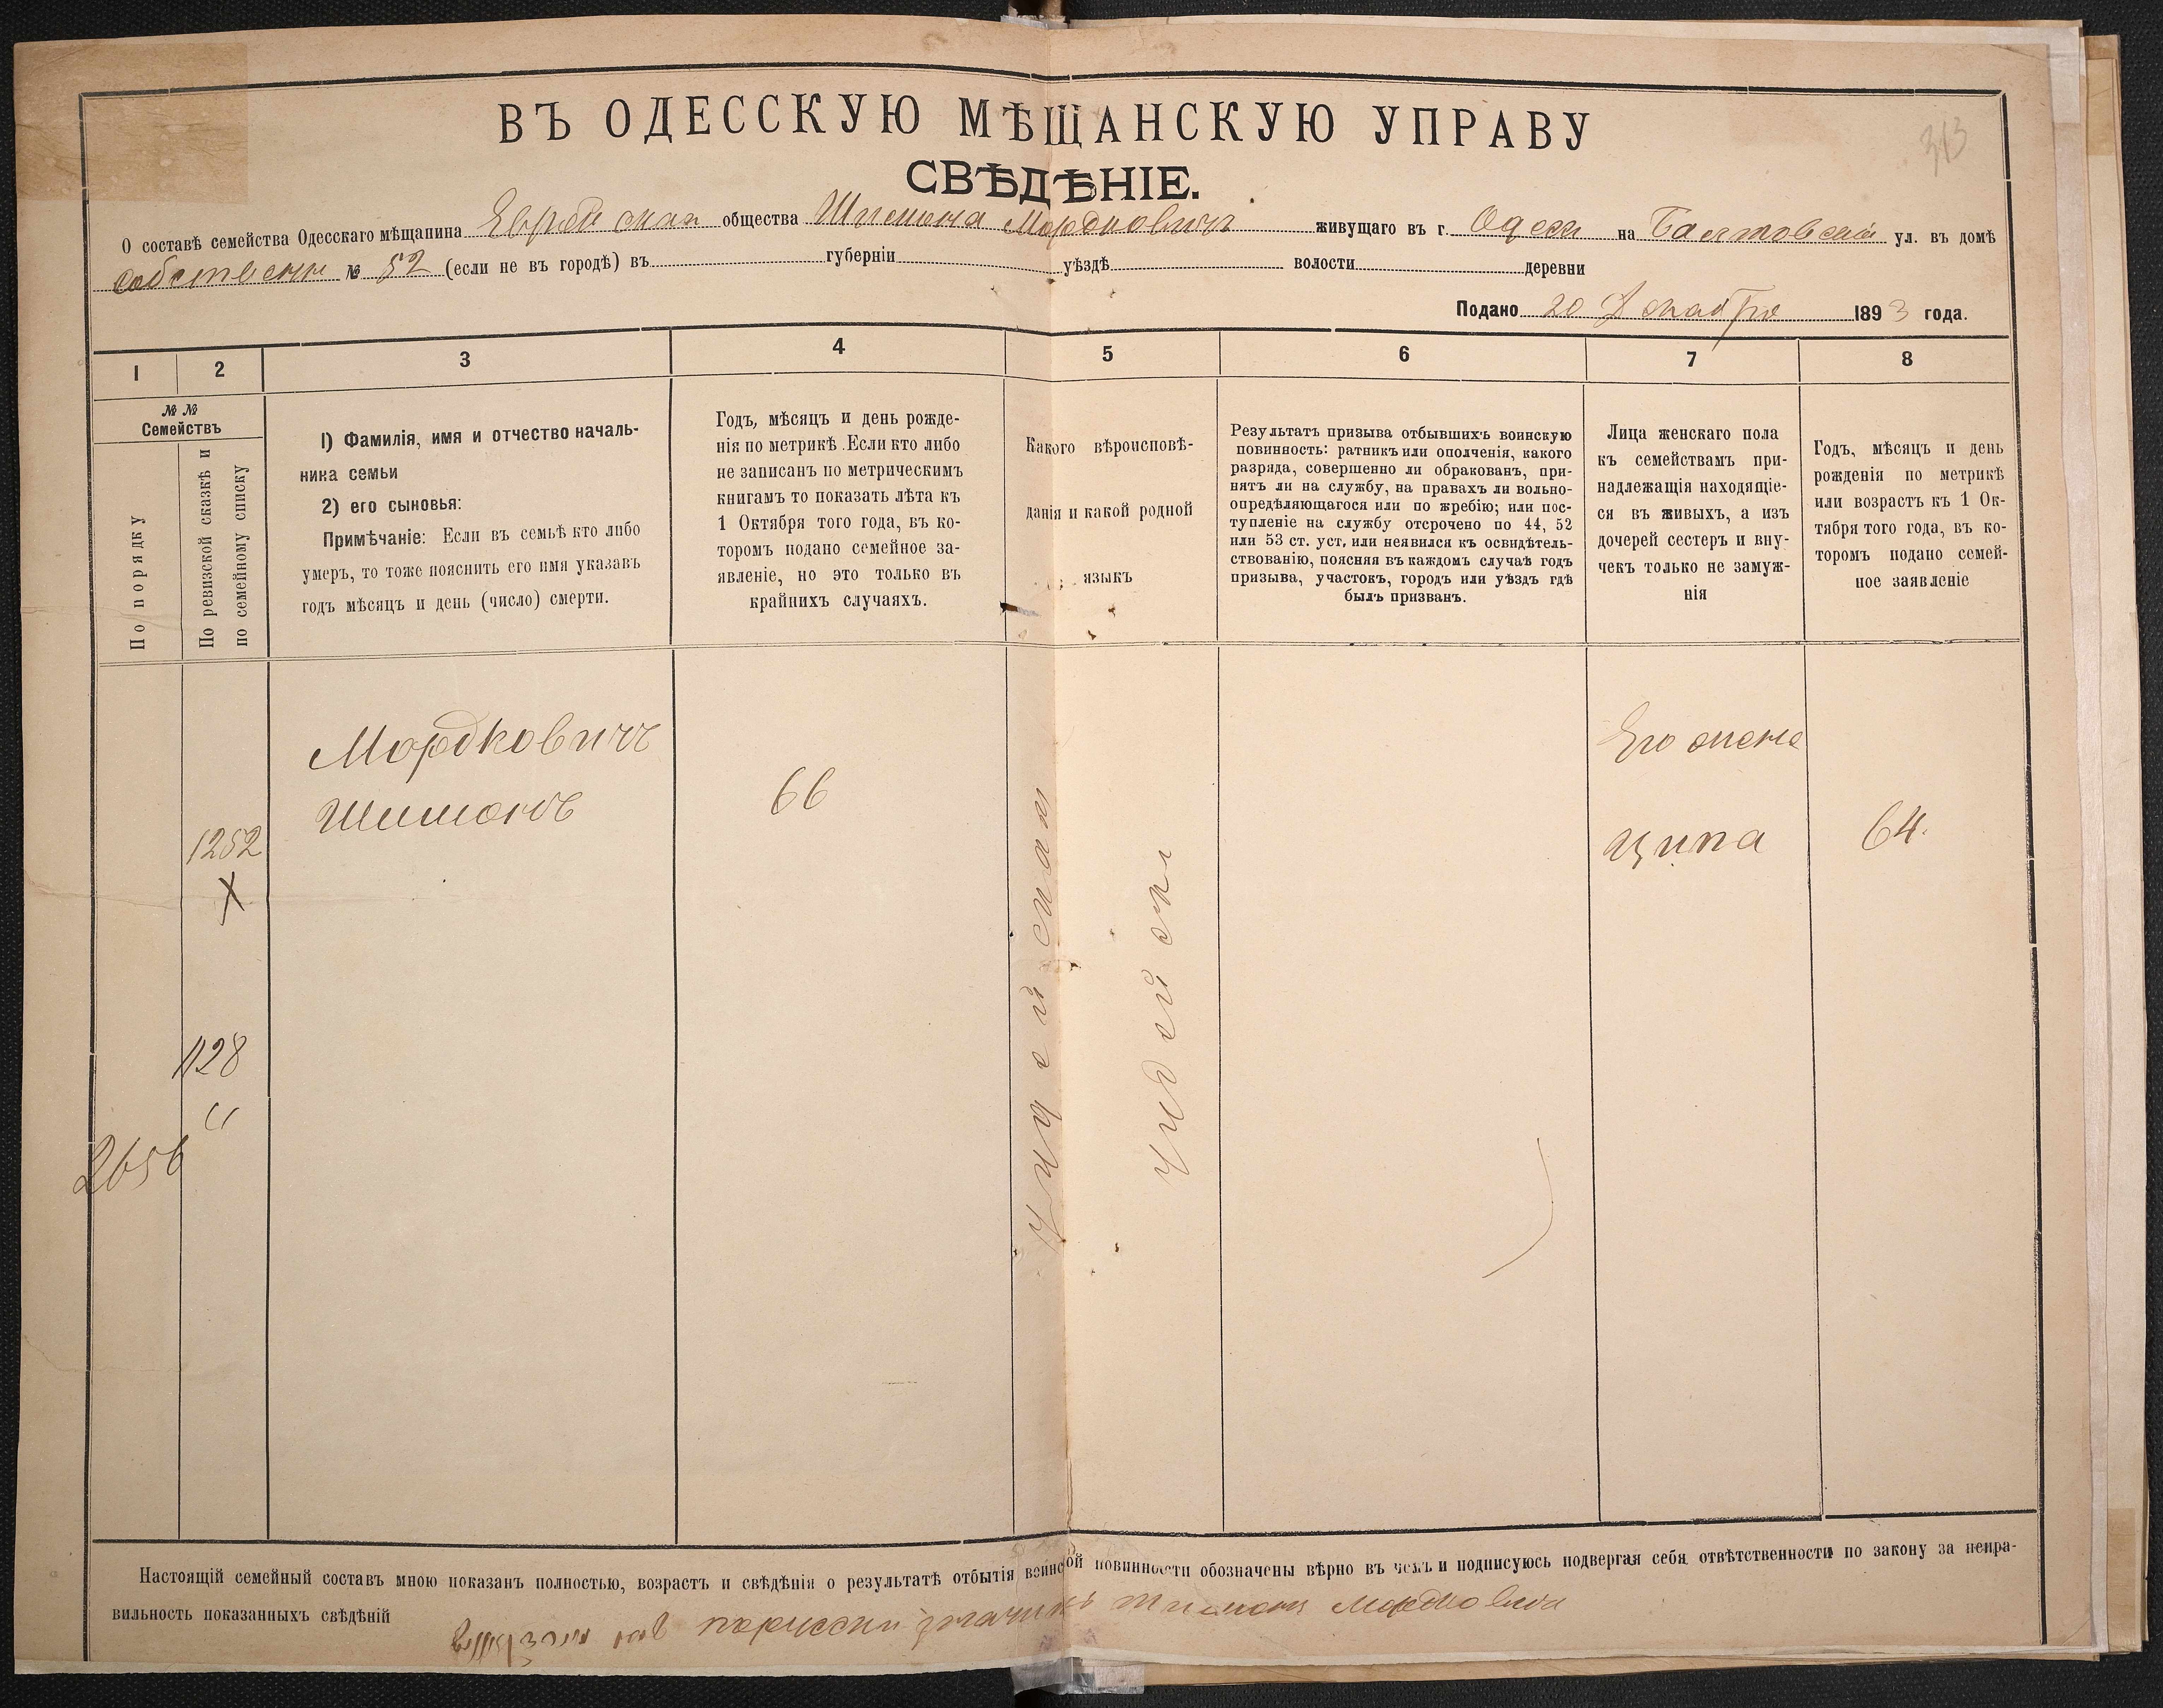 ВЪ ОДЕССКУЮ МѢЩАНСКУЮ УПРАВУ
313
СВѢДѢНІЕ.
О составѣ семейства Одесскаго мѣщанина Еврейскаго общества Шимона Мордковичъ живущаго въ г. Одесы на Балтовской ул. въ домѣ
собственн № 52 (если не въ городѣ) въ губерніи уѣздѣ волости деревни
Подано 20 Декабря 1893 года.
1 2 3 4 5 6 7 8
№ №
Семействъ
По порядку
По ревизской сказкѣ и
по семейному списку
1) Фамилія, имя и отчество началь-
ника семьи
2) его сыновья:
Примѣчаніе: Если въ семьѣ кто либо
умеръ, то тоже пояснить его имя указавъ
годъ мѣсяцъ и день (число) смерти.
Годъ, мѣсяцъ и день рожде-
нія по метрикѣ. Если кто либо
не записанъ по метрическимъ
книгамъ то показать лѣта къ
1 Октября того года, въ ко-
торомъ подано семейное за-
явленіе, но это только въ
крайнихъ случаяхъ.
Какого вѣроисповѣ-
данія и какой родной
языкъ
Результатъ призыва отбывшихъ воинскую
повинность: ратникъ или ополченія, какого
разряда, совершенно ли обракованъ, при-
нятъ ли на службу, на правахъ ли вольно-
опредѣляющагося или по жребію; или пос-
тупленіе на службу отсрочено по 44, 52
или 53 ст. уст, или неявился къ освидѣтель-
ствованію, поясняя въ каждомъ случаѣ годъ
призыва, участокъ, городъ или уѣздъ гдѣ
былъ призванъ.
Лица женскаго пола
къ семействамъ при-
надлежащія находящіе-
ся въ живыхъ, а изъ
дочерей сестеръ и вну-
чекъ только не замуж-
нія
Годъ, мѣсяцъ и день
рожденія по метрикѣ
или возрастъ къ 1 Ок-
тября того года, въ ко-
торомъ подано семей-
ное заявленіе
Мордковичъ
Шимонъ
66
Его жена
Ципа
64.
1252
X
1128
2656
Настоящій семейный составъ мною показанъ полностью, возрастъ и свѣдѣнія о результатѣ отбытія воинской повинности обозначены вѣрно въ чемъ и подписуюсь подвергая себя отвѣтственности по закону за непра-
вильность показанныхъ свѣдѣній